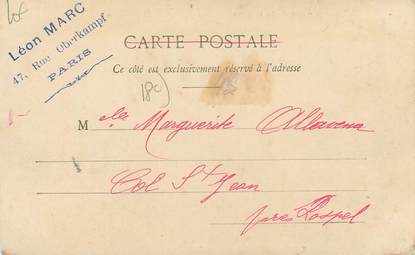 Léon MARC
47, Rue Oberkampf
PARIS
CARTE POSTALE
Ce côté est exclusivement réservé à l'adresse
180
Melle Marguerite Allavena
Col St Jean
près Sospel